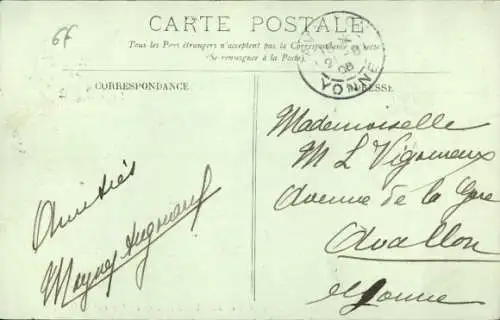 6f
CARTE POSTALE
Tous les Pays étrangers n'acceptent pas la Correspondance au recto
(Se renseigner à la Poste).
CORRESPONDANCE
ADRESSE
08
YONNE
Amitiés
Mademoiselle
M L Vigoureux
Avenue de la Gare
Avallon
Yonne